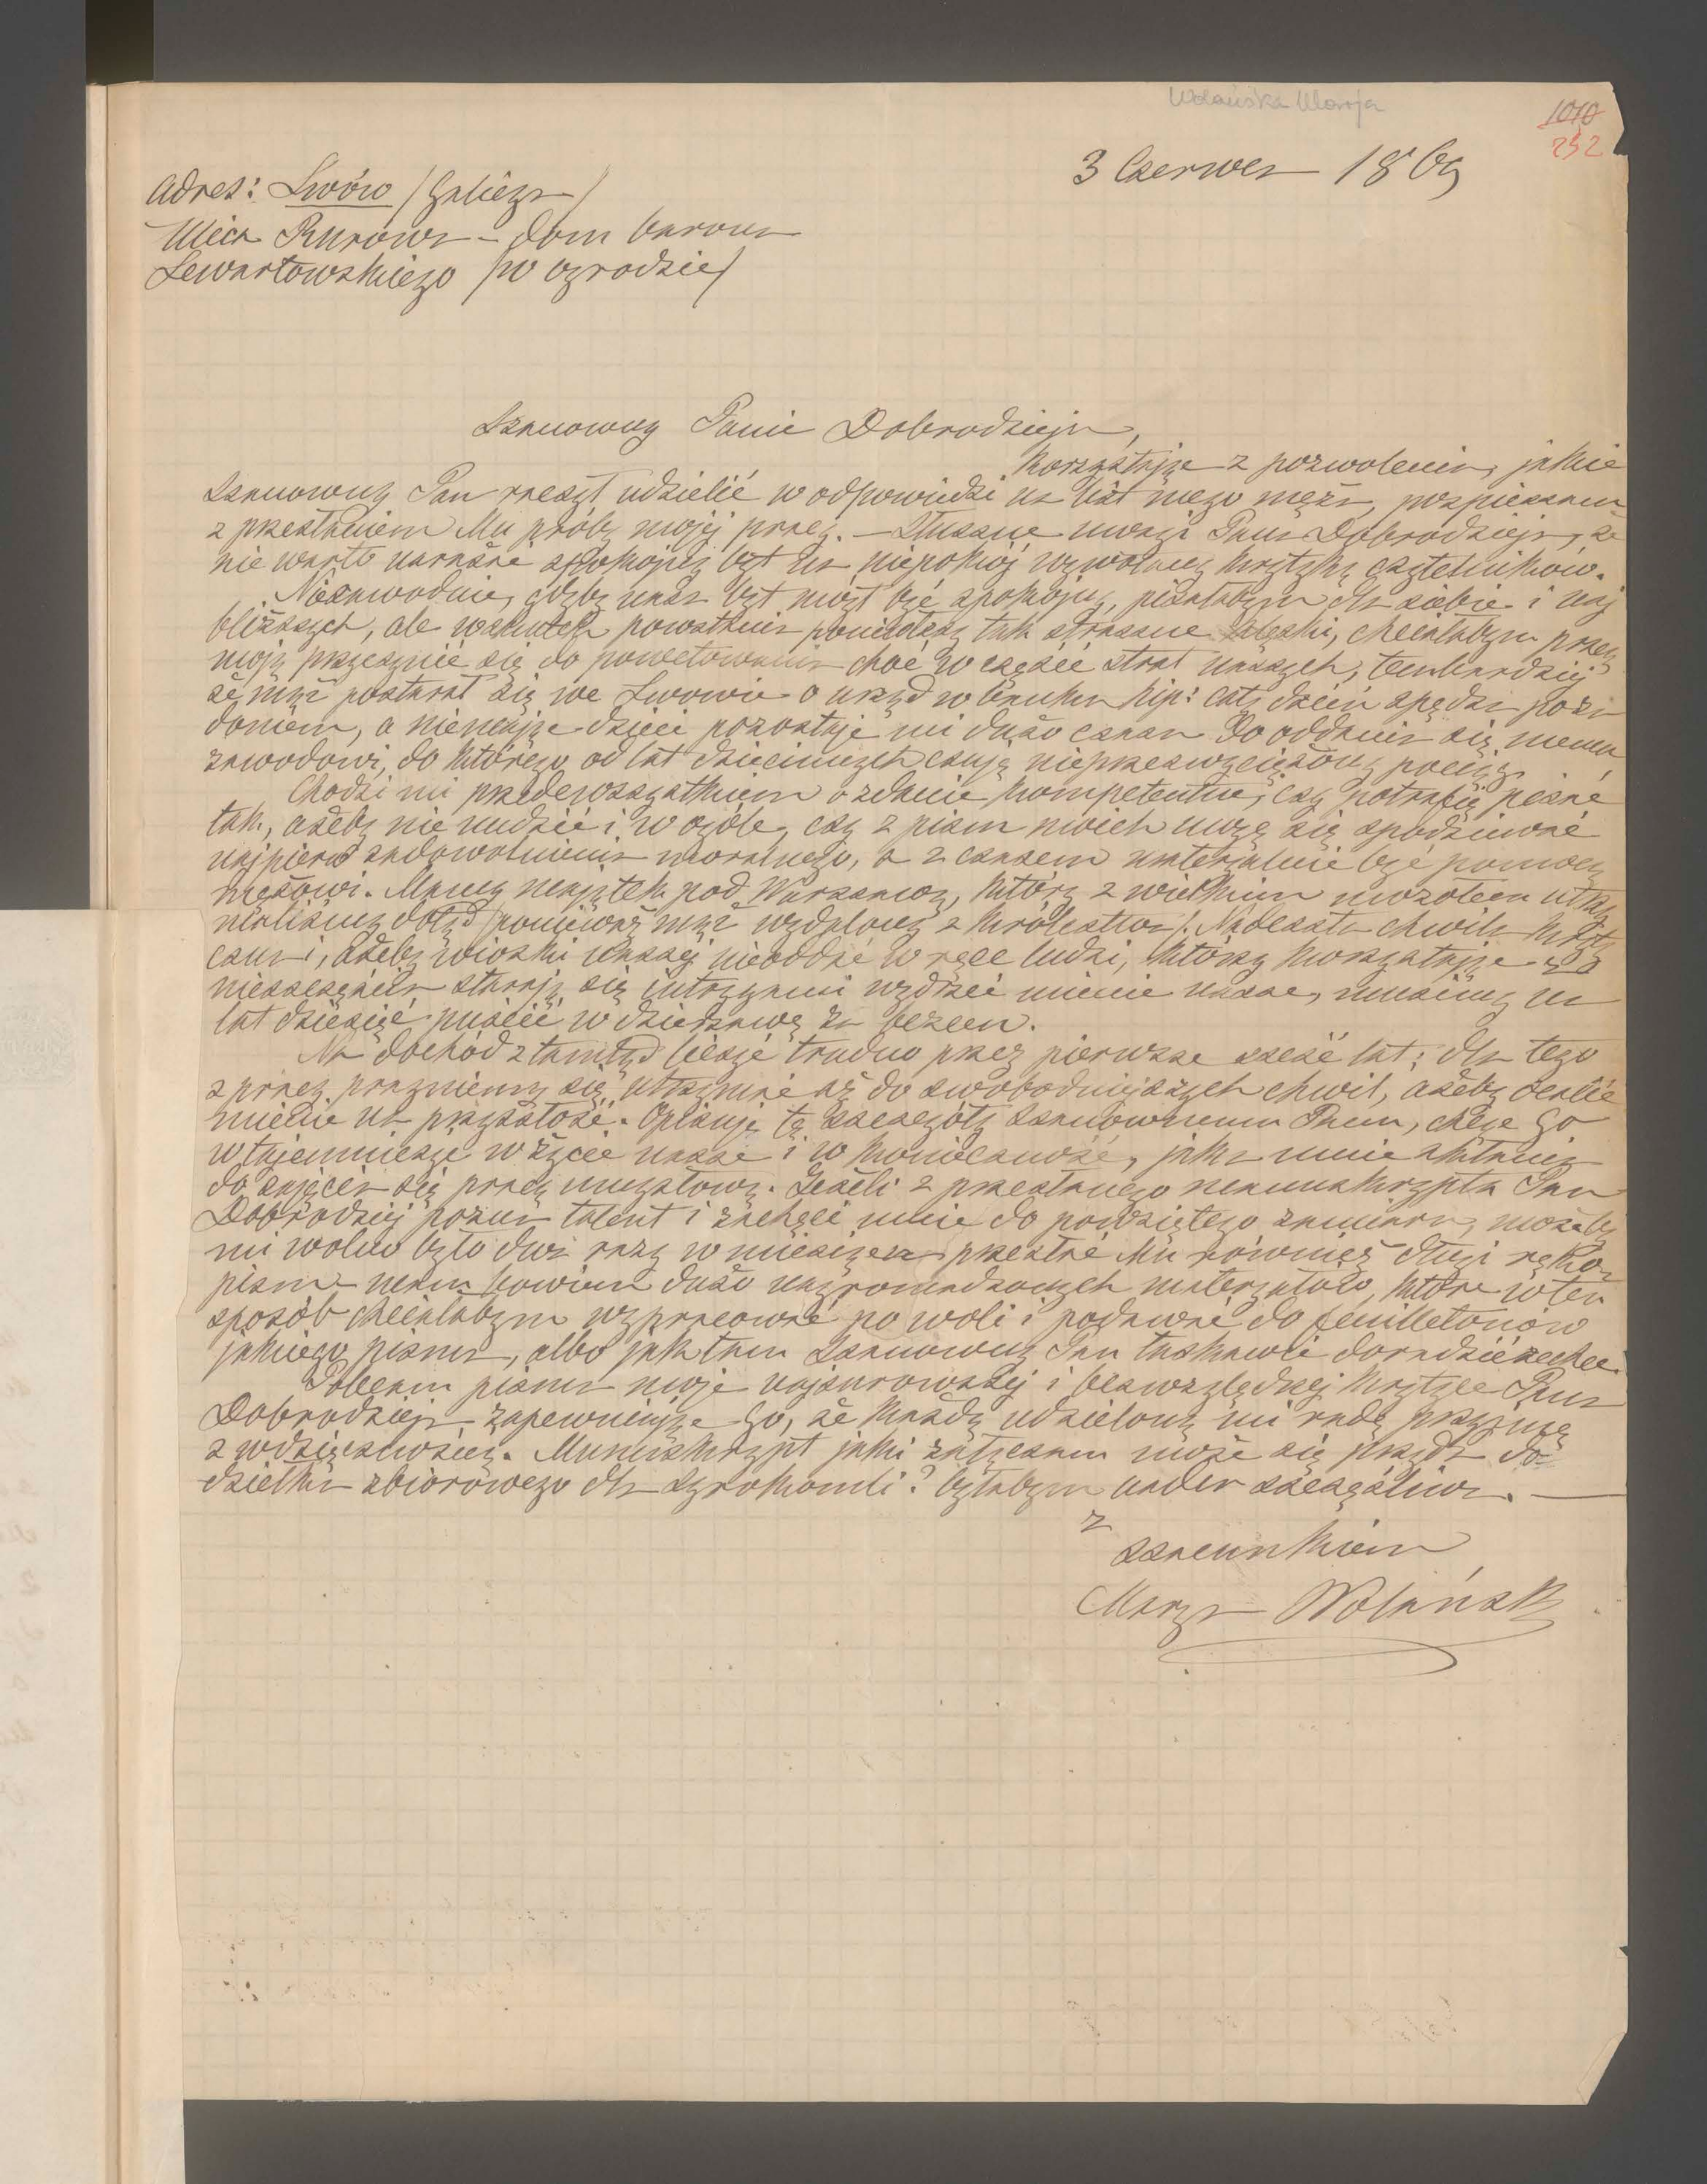 Wolańska Marja
1010
232
3 Czerwca 1869
Adres: Lwów /Galicya/
Ulica Rurowa – dom barona
Lewartowskiego /w ogrodzie/
Szanowny Panie Dobrodzieju,
Korzystając z pozwolenia, jakie
Szanowny Pan raczył udzielić w odpowiedzi na list mego męża, pospieszam
z przesłaniem Mu próby mojej pracy. – Słuszne uwagi Pana Dobrodzieja, że
nie warto narażać spokojny byt na niepokój wywołany krytyką czytelników.
Niezawodnie, gdyby nasz byt mógł być spokojny, pisałabym dla siebie i naj
bliższych, ale wskutek powstania ponieśliśmy tak straszne klęski, chciałabym pracą
moją przyczynić się do powetowania choć w części strat naszych, tembardziej
że mąż postarał się we Lwowie o urząd w banku hip: cały dzień spędza poza
domem, a niemając dzieci pozostaje mi dużo czasu do oddania się memu
zawodowi, do którego od lat dziecinnych czuję nieprzezwyciężony pociąg.
Chodzi mi przedewszystkiem o zdanie kompetentne, czy potrafię pisać
tak, ażeby nie nudzić i w ogóle, czy z pism moich mogę się spodziewać
najpierw zadowolnienia moralnego, a z czasem materyalnie być pomocą
mężowi. Mamy majątek pod Warszawą, który z wielkim mozołem utrzy
maliśmy dotąd /ponieważ mąż wydalony z Królestwa/. Nadeszła chwila kryty
czna i, ażeby wioski naszej nieoddać w ręce ludzi, którzy korzystając z
nieszczęścia starają się intrygami wydrzeć mienie nasze, musimy na
lat dziesięć puścić w dzierżawę za bezcen.
Na dochód ztamtąd liczyć trudno przez pierwsze sześć lat; dla tego
z pracy pragniemy się utrzymać aż do swobodniejszych chwil, ażeby ocalić
mienie na przyszłość. Opisuję te szczegóły Szanownemu Panu, chcąc Go
wtajemniczyć w życie nasze i w konieczność, jaka mnie skłania
do zajęcia się pracą umysłową. Jeżeli z przesłanego manuskryptu Pan
Dobrodziej pozna talent i zachęci mnie do powziętego zamiaru, możeby
mi wolno było dwa razy w miesiącu przesłać Mu również długi ręko-
pism – mam bowiem dużo nagromadzonych materyałów, które w ten
sposób chciałabym wypracować po woli i podawać do feuilletonów
jakiego pisma, albo jak tam Szanowny Pan łaskawie doradzić zechce.
Polecam pisma moje najsurowszej i bezwzględnej krytyce Pana
Dobrodzieja zapewniając Go, że każdą udzieloną mi radę przyjmę
z wdzięcznością. Manuskrypt jaki załączam może się przyda do
dziełka zbiorowego dla Syrokomli? byłabym nader szczęśliwa. —
z
szacunkiem
Marya Wolańska